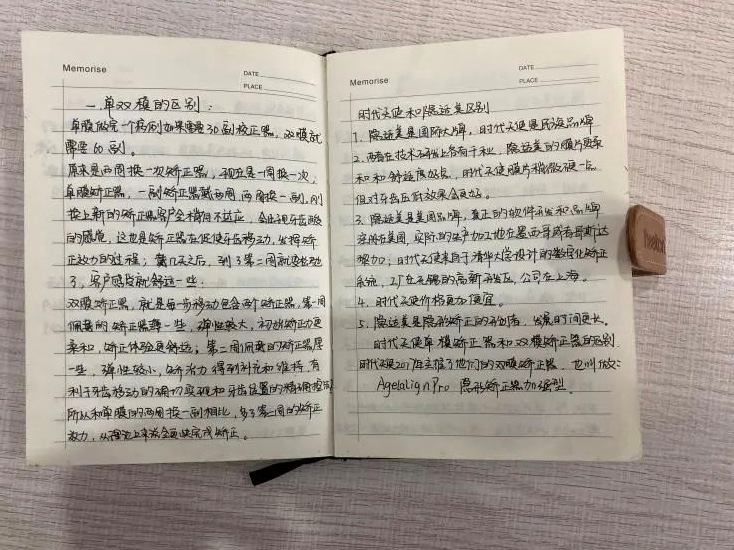 Memorise
DATE
PLACE
一.单双模的区别:
单膜做完一个病例如果需要30副校正器,双膜就
需要60副。
原来是两周换一次矫正器,现在是一周换一次,
单膜矫正器,一副矫正器戴两周,两周换一副,刚
换上新的矫正器客户会稍有不适应,会出现牙齿酸
的感觉,这也是矫正器在促使牙齿移动,发挥矫
正效力的过程;戴几天之后,到了第二周就要松动
了,客户感受就舒适一些;
双膜矫正器,就是每步移动包含两个矫正器,第一周
佩戴的矫正器薄一些,弹性较大,初始矫正力更
柔和,矫正体验更舒适。第二周佩戴的矫正器厚
一些,弹性较小,矫治力得到补充和维持,有
利于牙齿移动的确切实现和牙齿位置的精确控制
所以和单膜的两周换一副相比,多了第二周的矫正
效力,从理论上来说会更快完成矫正。
Memorise
DATE
PLACE
时代天使和隐适美区别
1.隐适美是国际大牌,时代天使是民族品牌
2.两者在技术研发上各有千秋,隐适美的膜片更柔
和和舒适度好点,时代天使膜片稍微硬一点
但对牙齿压低效果会更好。
3.隐适美是美国品牌,真正的软件研发和品牌
注册在美国,实际的生产加工地在墨西哥或者哥斯达
黎加;时代天使来自于清华大学设计的数字化矫正
系统,工厂在无锡的高新开发区,公司在上海。
4.时代天使价格更加便宜。
5.隐适美是隐形矫正的开创者,发展时间更长。
时代天使单模矫正器和双模矫正器的区别
时代天使2017年主推了他们的双膜矫正器,也叫做:
AngelalignPro 隐形矫正器加强型。